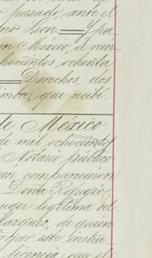 pasado, ante el
no Leon == Fra
en Mexico, á nue
ochocientos ochenta
== Derechos, dos
timbre, que recibí.
de México
de mil ochocientos
Notario público
en comparecieron
Doña Refugio
muger legítima del
Vazquez, de quien
por este instru
licencia que el